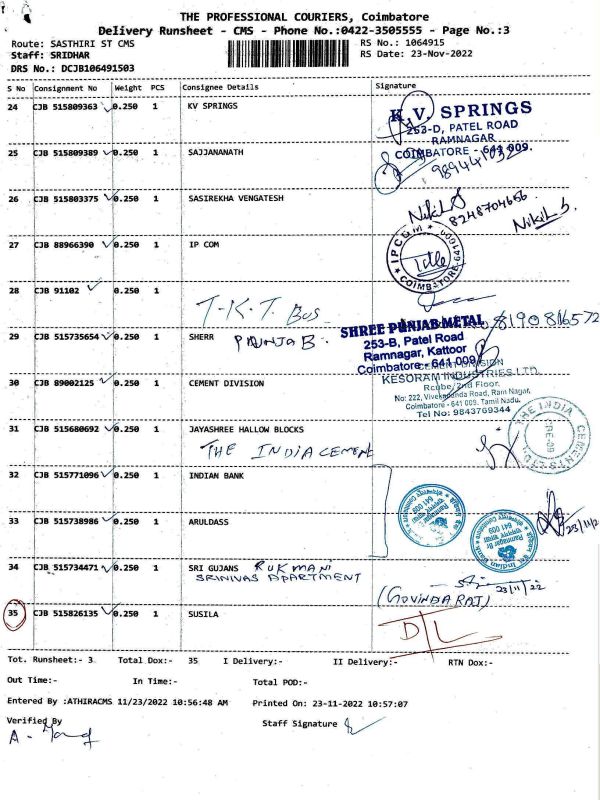 THE PROFESSIONAL COURIERS, Coimbatore
Delivery Runsheet - CMS - Phone No.:0422-3505555 - Page No.:3
Route: SASTHIRI ST CMS
RS No.: 1064915
Staff: SRIDHAR
RS Date: 23-Nov-2022
DRS No.: DCJB106491503
S No Consignment No Weight PCS Consignee Details Signature
24 CJB 515809363 0.250 1 KV SPRINGS
K.V. SPRINGS
253-D, PATEL ROAD
RAMNAGAR
COIMBATORE - 641 009.
25 CJB 515809389 0.250 1 SAJJANANATH
26 CJB 515803375 0.250 1 SASIREKHA VENGATESH
Nikil S
8248704656
Nikil S.
27 CJB 88966390 0.250 1 IP COM
IPCOM
COIMBATORE-641009
28 CJB 91102 0.250 1
T.K.T Bus
8190816572
29 CJB 515735654 0.250 1 SHERR PUNJAB.
SHREE PUNJAB METAL
253-B, Patel Road
Ramnagar, Kattoor
Coimbatore - 641 009
30 CJB 89002125 0.250 1 CEMENT DIVISION
CEMENT DIVISION
KESORAM INDUSTRIES LTD.
Rcube/2nd Floor,
No: 222, Vivekananda Road, Ram Nagar,
Coimbatore - 641 009. Tamil Nadu.
Tel No: 9843769344
31 CJB 515680692 0.250 1 JAYASHREE HALLOW BLOCKS
THE INDIA CEMENT
THE INDIA CEMENTS
CBE-09
32 CJB 515771096 0.250 1 INDIAN BANK
33 CJB 515738986 0.250 1 ARULDASS
23/11/2
34 CJB 515734471 0.250 1 SRI GUJANS RUKMANI
SRINIVAS APARTMENT
23/11/22
(GOVINDARAJ)
35 CJB 515826135 0.250 1 SUSILA
D/L
Tot. Runsheet:- 3 Total Dox:- 35 I Delivery:- II Delivery:- RTN Dox:-
Out Time:- In Time:- Total POD:-
Entered By :ATHIRACMS 11/23/2022 10:56:48 AM Printed On: 23-11-2022 10:57:07
Verified By Staff Signature